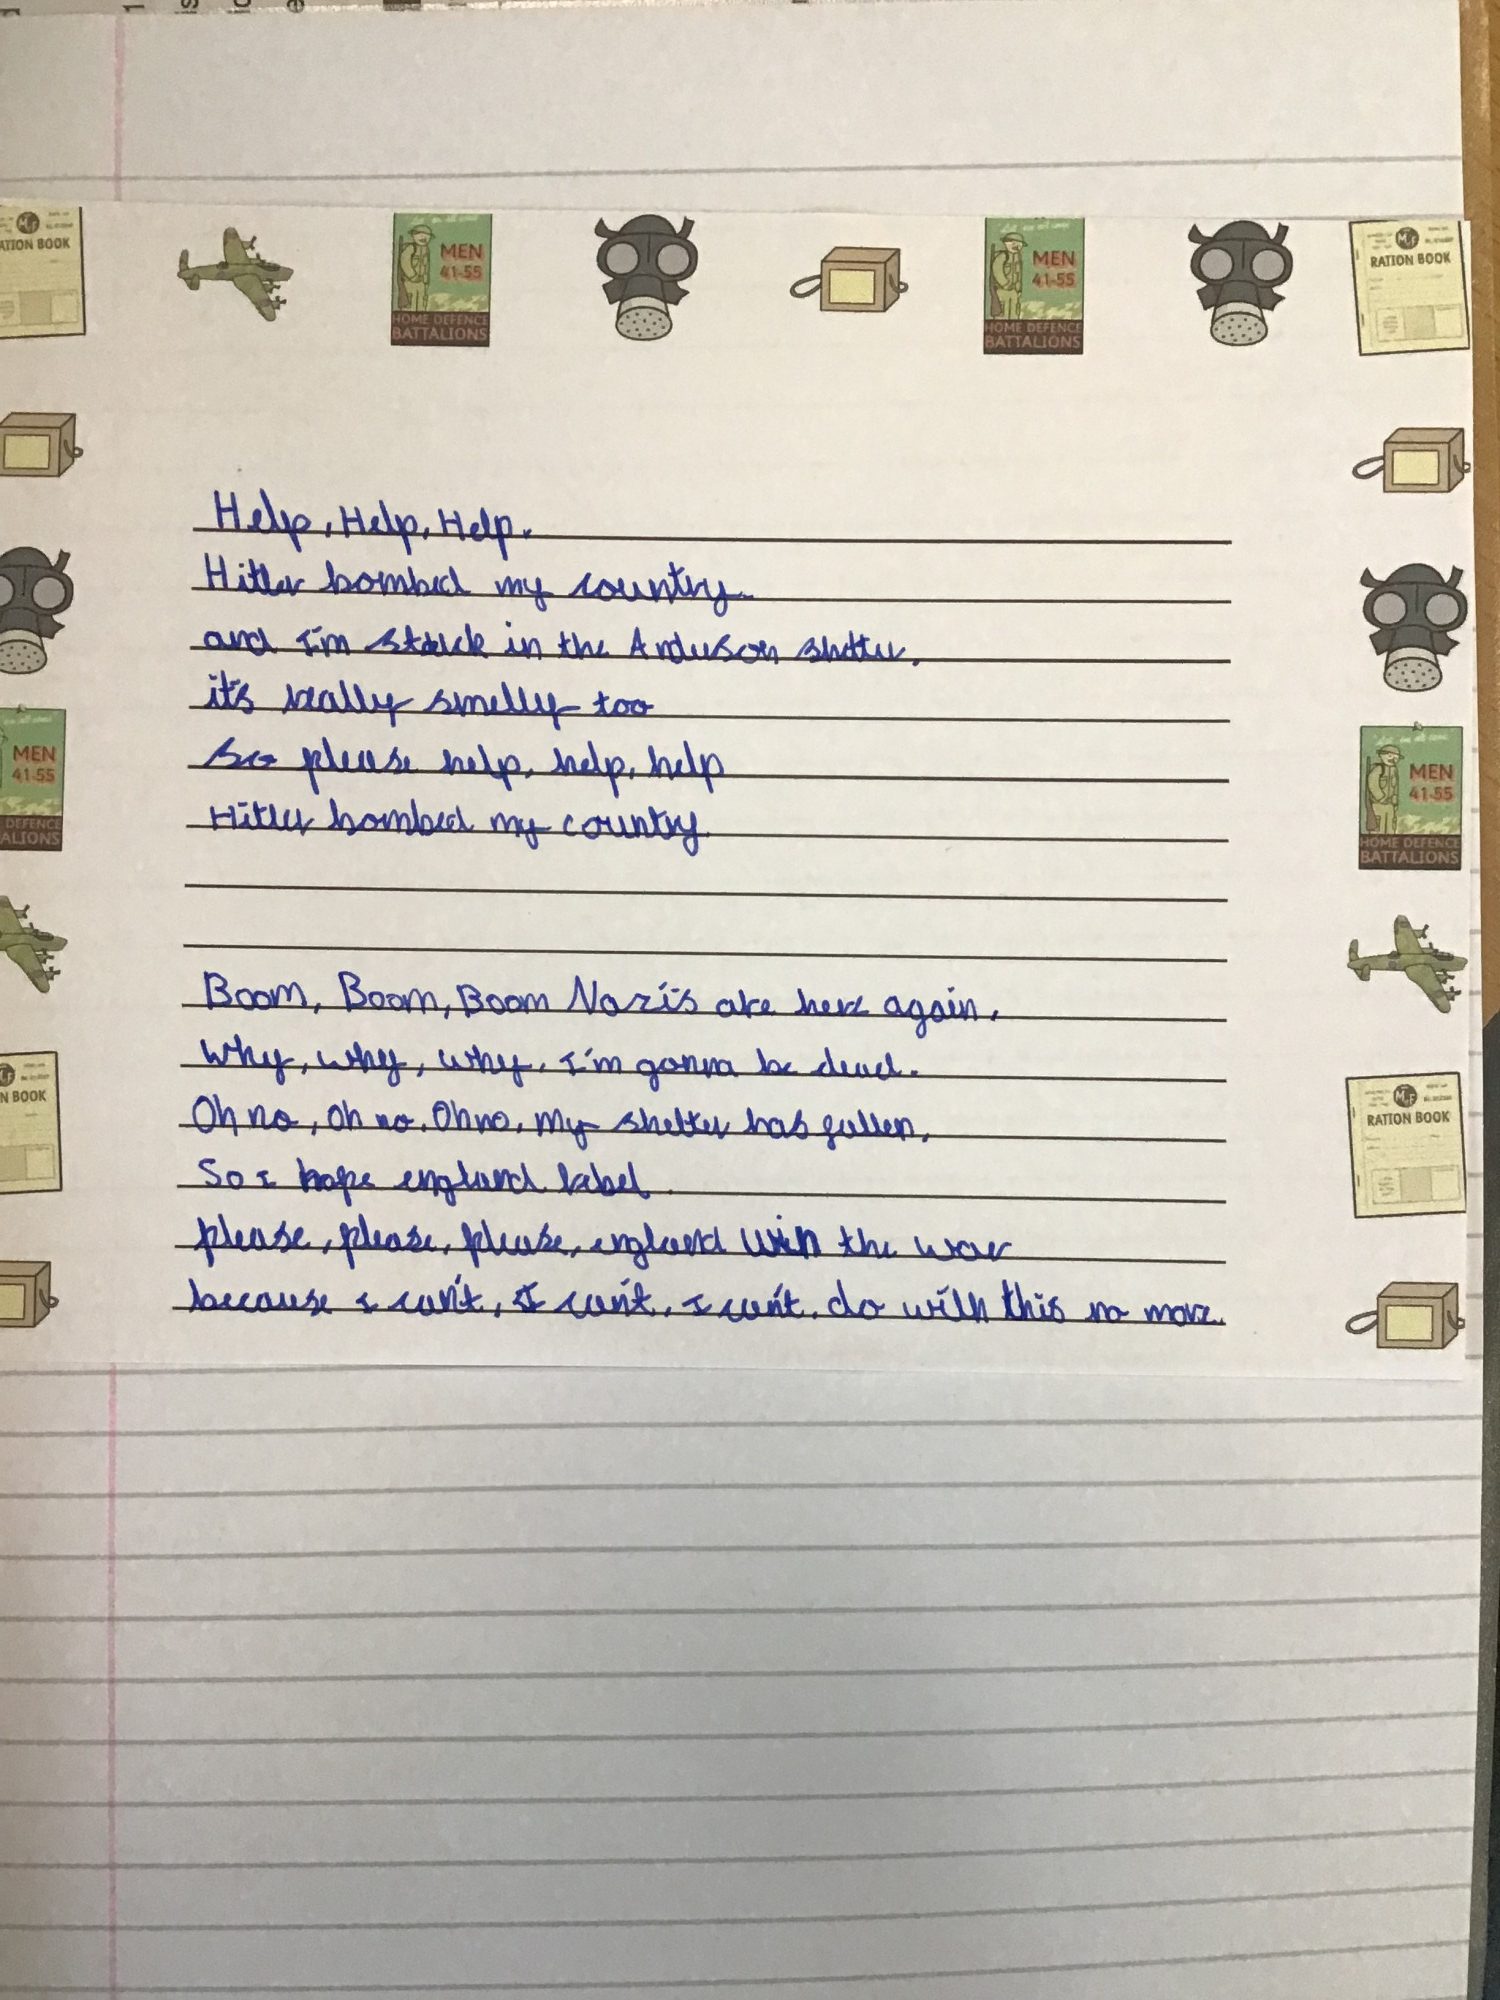 RATION BOOK
MEN
41-55
HOME DEFENCE
BATTALIONS
MEN
41-55
HOME DEFENCE
BATTALIONS
RATION BOOK
Help, Help, Help.
Hitler bombed my country
and I'm stuck in the Anderson shelter.
it's really smelly too
So please help, help, help
Hitler bombed my country
MEN
41-55
DEFENCE
ALIONS
MEN
41-55
HOME DEFENCE
BATTALIONS
Boom, Boom, Boom Nazi's are here again,
Why, why, why, I'm gonna be dead.
Oh no, Oh no, Oh no, my shelter has fallen,
So I hope england
please, please, please, england win the war
because I can't, I can't, I can't. do with this no more.
N BOOK
RATION BOOK